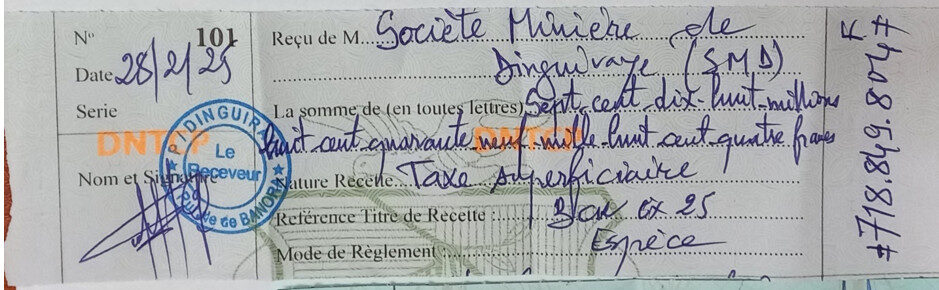 N° 101
Reçu de M. Société Minière de
Date 28/2/25
Dinguiraye (SMD)
Serie
La somme de (en toutes lettres) Sept-cent-dix-huit-millions
DNTCP
DNTCP
huit-cent-quarante-neuf-mille-huit-cent-quatre francs
P/DINGUIRA
Le
Receveur
de BANORA
Nom et Signature
Nature Recette Taxe superficiaire
Reférence Titre de Recette : Bon ex 25
Mode de Règlement : Espèce
#718.849.804# F